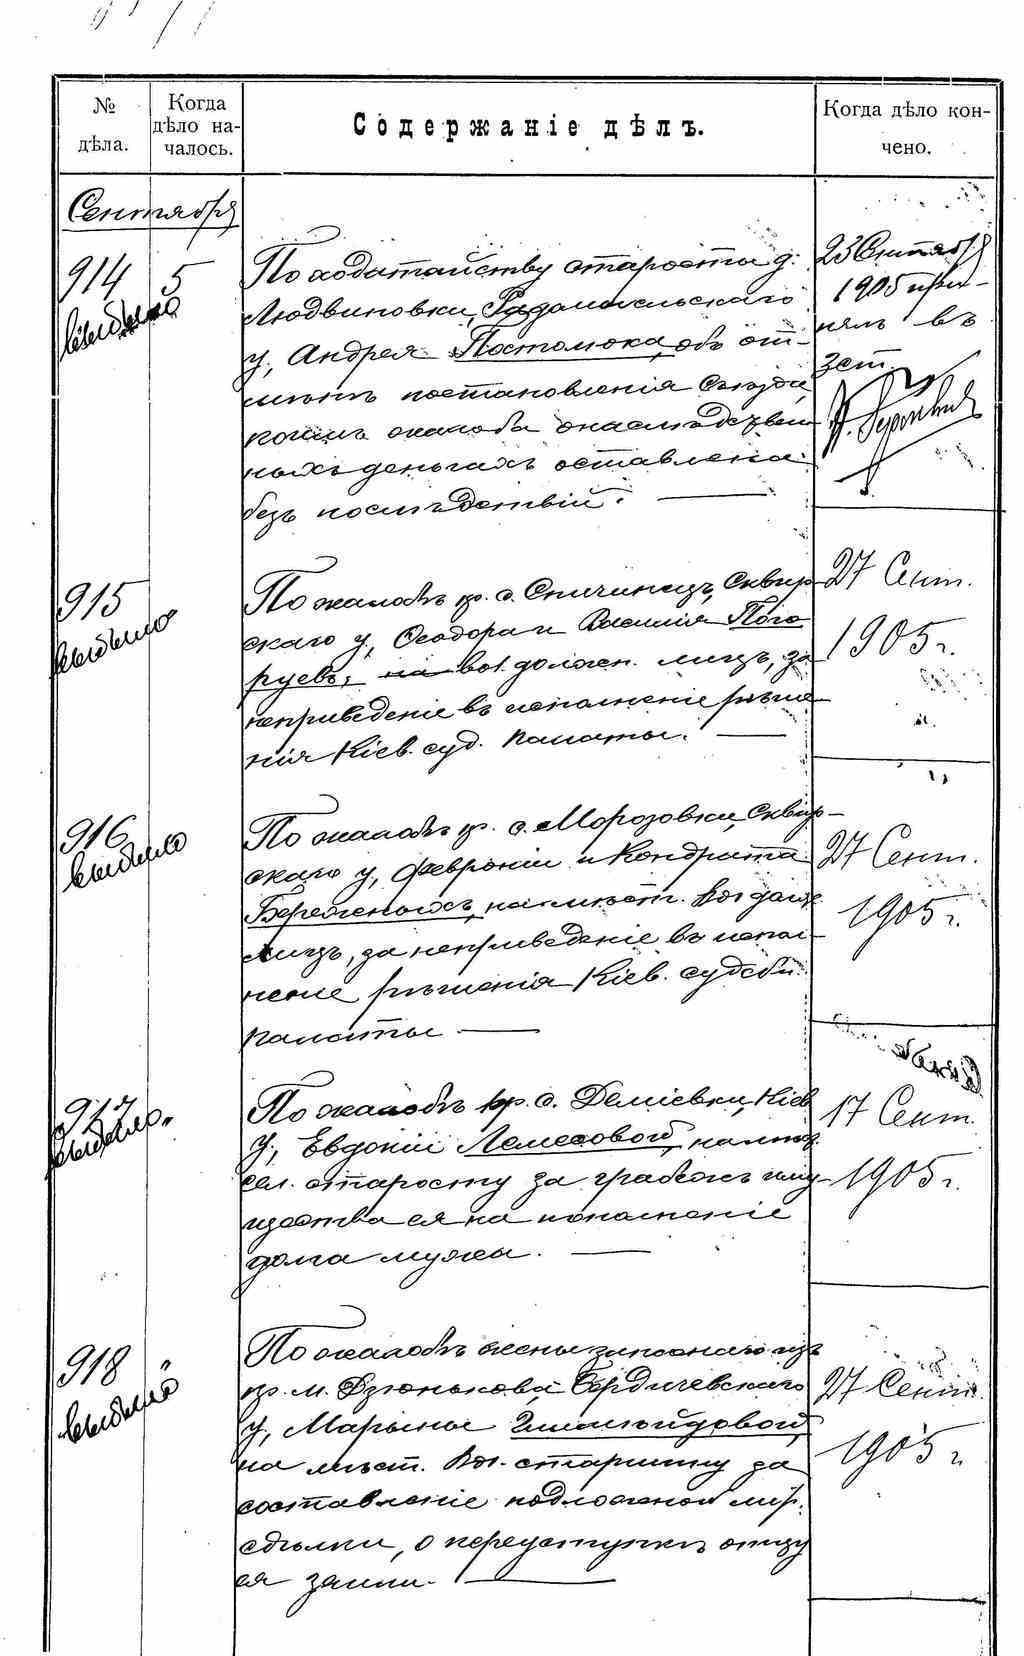 № дѣла.
Когда дѣло на-
чалось.
Содержаніе дѣлъ.
Когда дѣло кон-
чено.
Сентября
914 5
выбыло
По ходатайству старосты д.
Людвиновки, Радомысльскаго
у, Андрея Постолюка, объ от-
мѣнѣ постановленія Съѣзда,
коимъ жалоба о наслѣдствен
ныхъ деньгахъ оставлена
безъ послѣдствій.
23 Сентября
1905 при-
нялъ въ
915
выбыло
По жалобѣ кр. с. Спичинецъ, Сквир
скаго у, Ѳеодора и Василія Пого
руевъ, на вол. должн. лицъ, за
неприведеніе въ исполненіе рѣше
нія Кіев. суд. палаты.
27 Сент.
1905 г.
916
выбыло
По жалобѣ кр. с. Морозовки, Сквир-
скаго у, Февроніи и Кондрата
Береженыхъ, на мѣст. Вол долж
лицъ, за неприведеніе въ испол-
неніе рѣшенія Кіев. судебн.
палаты
27 Сент.
1905 г.
917 "
выбыло
По жалобѣ кр. с. Деміевки, Кіев
у, Евдокіи Лемеховой, на мѣст.
сел. старосту за грабежъ иму-
щества ея на пополненіе
долга мужа.
17 Сент.
1905 г.
918 "
выбыло
По жалобѣ жены запаснаго изъ
кр. м. Дзюнькова, Бердичевскаго
у, Марьяны
на мѣст. Вол. старшину за
составленіе подложной мір.
сдѣлки, о переуступкѣ отцу
ея земли.
27 Сент.
1905 г.